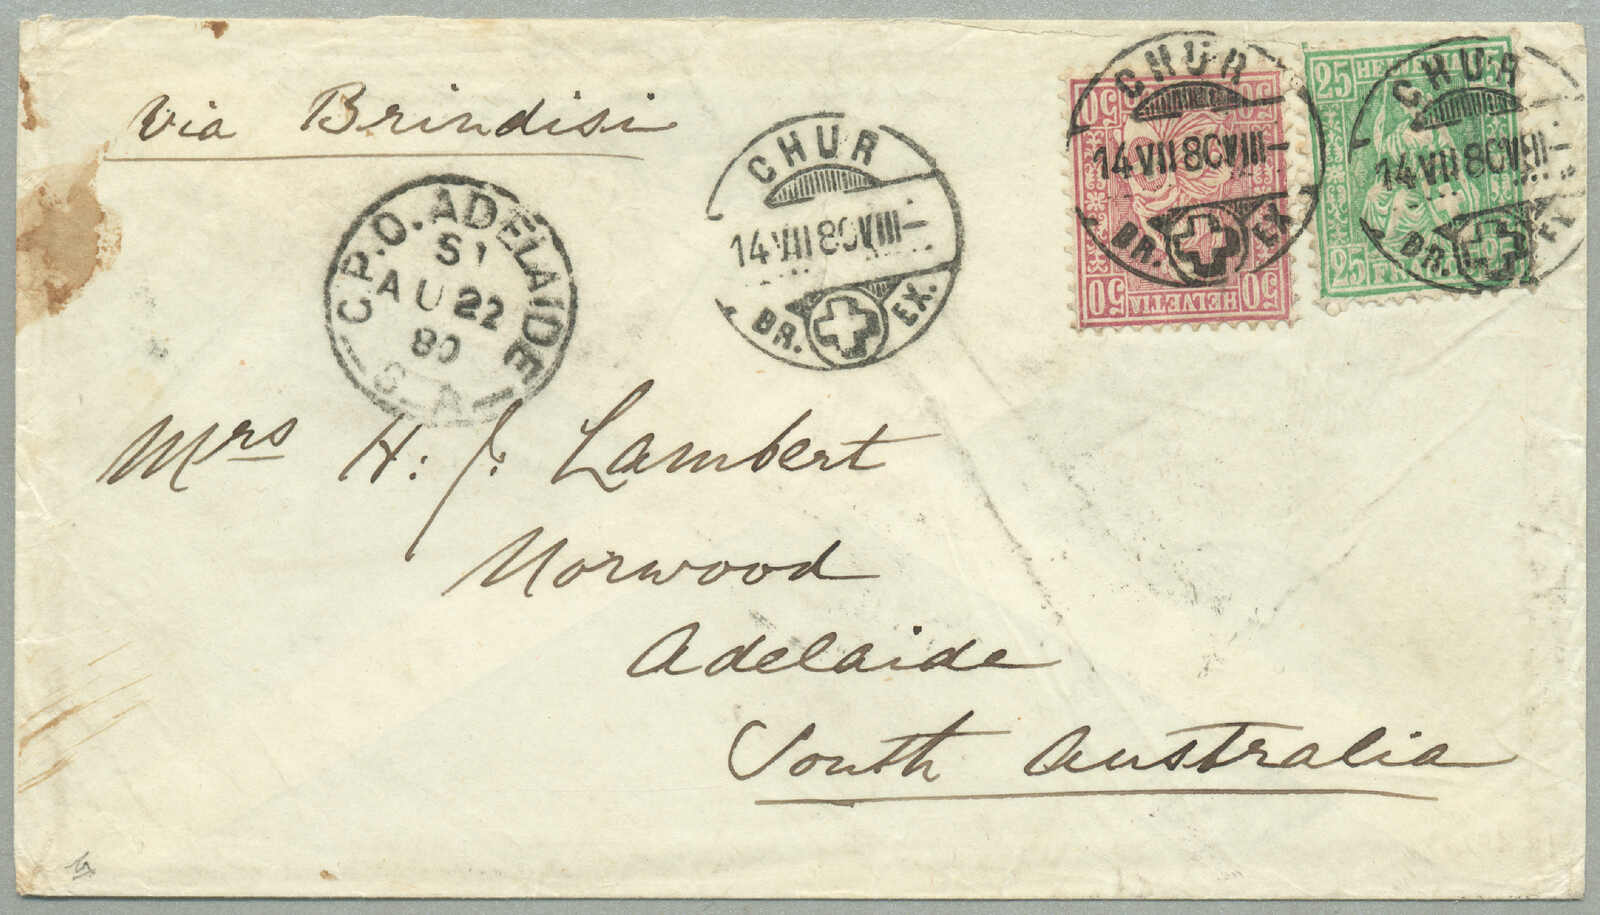 via Brindisi
G.P.O. ADELAIDE
S1
AU 22
80
S. A.
CHUR
14 VII 80 VIII–
BR. EX.
50 50
HELVETIA
50 50
CHUR
14 VII 80 VIII–
BR. EX.
25 HELVETIA 25
25 FRANCO
CHUR
14 VII 80 VIII–
BR. EX.
Mrs H. J. Lambert
Norwood
Adelaide
South Australia